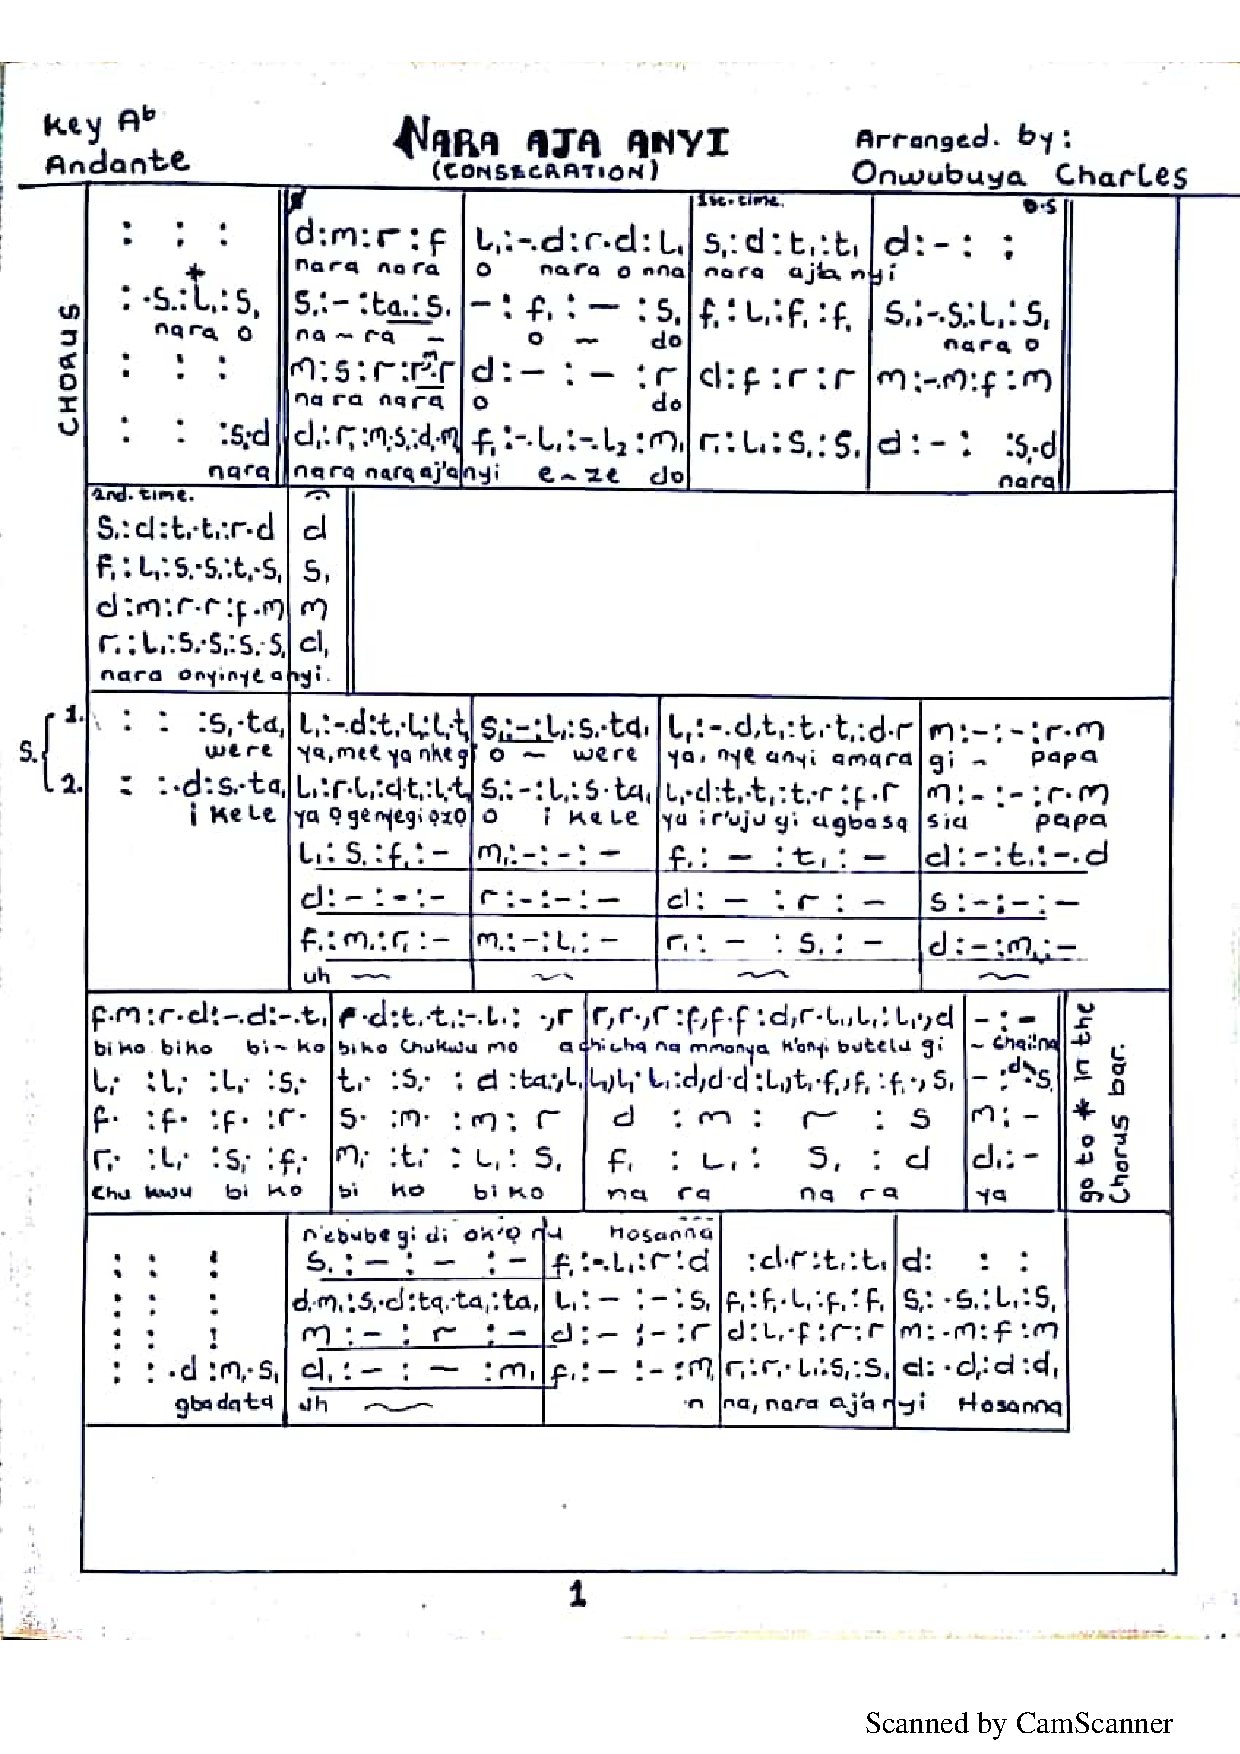 Key Ab
Andante
NARA AJA ANYI
(CONSECRATION)
Arranged. by:
Onwubuya Charles
CHORUS
1st.time.
D.S
: : :
d:m:r:f
l,:-.d:r.d:l,
s,:d:t,:t,
d:-: :
nara nara
o nara o nna
nara aja nyi
*
: .s,:l,:s,
s,:-:ta,:s,
-:f,:-:s,
f,:l,:f,:f,
s,:-.s,:l,:s,
nara o
na-ra -
o - do
nara o
: : :
m:s:r:r.m.r
d:-:-:r
d:f:r:r
m:-.m:f:m
nara nara
o do
: : :s,.d
d,:r,:m,.s,:d.m
f,:-.l,:-.l2:m,
r,:l,:s,:s,
d:-: :s,.d
nara
nara nara aj'anyi
e-ze do
nara
2nd.time.
s,:d:t,.t,:r.d
d
f,:l,:s,.s,:t,.s,
s,
d:m:r.r:f.m
m
r,:l,:s,.s,:s,.s,
d,
nara onyinye anyi.
S.
1.
: : :s,.ta,
l,:-d:t,.l,:l,t,
s,:-:l,:s,.ta,
l,:-.d,t,:t,.t,:d.r
m:-:-:r.m
were
ya, mee ya nke g
o - were
ya, nye anyi amara
gi - papa
2.
: :.d:s,.ta,
l,:r.l,:d.t,:l,t,
s,:-:l,:s,.ta,
l,.d:t,.t,:t,.r:f.r
m:-:-:r.m
i kele
ya ọgenyegi ọzọ
o i kele
ya ir'uju gi agbasa
sia papa
l,:s,:f,:-
m,:-:-:-
f,:-:t,:-
d:-:t,:-.d
d:-:-:-
r:-:-:-
d:-:r:-
s:-:-:-
f,:m,:r,:-
m,:-:l,:-
r,:-:s,:-
d:-:m,:-
uh
f.m:r.d:-.d:-.t,
r.d:t,.t,:-.l,: .,r
r,r.,r:f,f.f:d,r.l,,l,:l,.,d
-:-
biko biko bi-ko
biko Chukwu mo
achicha na mmanya k'anyi butelu gi
l,. :l,. :l,. :s,.
t,. :s,. :d:ta,.,l,
l,,l,.l,:d,d.d:l,,t,.f,,f,:f,.,s,
f. :f. :f. :r.
s. :m. :m:r
d :m : r : s
m:-
r,. :l,. :s,. :f,.
m,. :t,. :l,:s,
f, :l,: s, :d
d,:-
Chu kwu bi ko
bi ko biko
na ra na ra
ya
go to * in the
Chorus bar.
n'ebube gi di ok'ọ nu Hosanna
: : :
s,:-:-:-
f,:-.l,:r:d
:d.r:t,:t,
d: : :
: : :
d.m,:s,.d:ta,.ta,:ta,
l,:-:-:s,
f,:f,.l,:f,:f,
s,: .s,:l,:s,
: : :
m:-:r:-
d:-:-:r
d:l,.f:r:r
m:.m:f:m
: :.d:m,.s,
d,:-:-:m,
f,:-:-:m,
r,:r,.l,:s,:s,
d: .d,:d:d,
gbadata
uh
na, nara aj'anyi Hosanna
1
Scanned by CamScanner